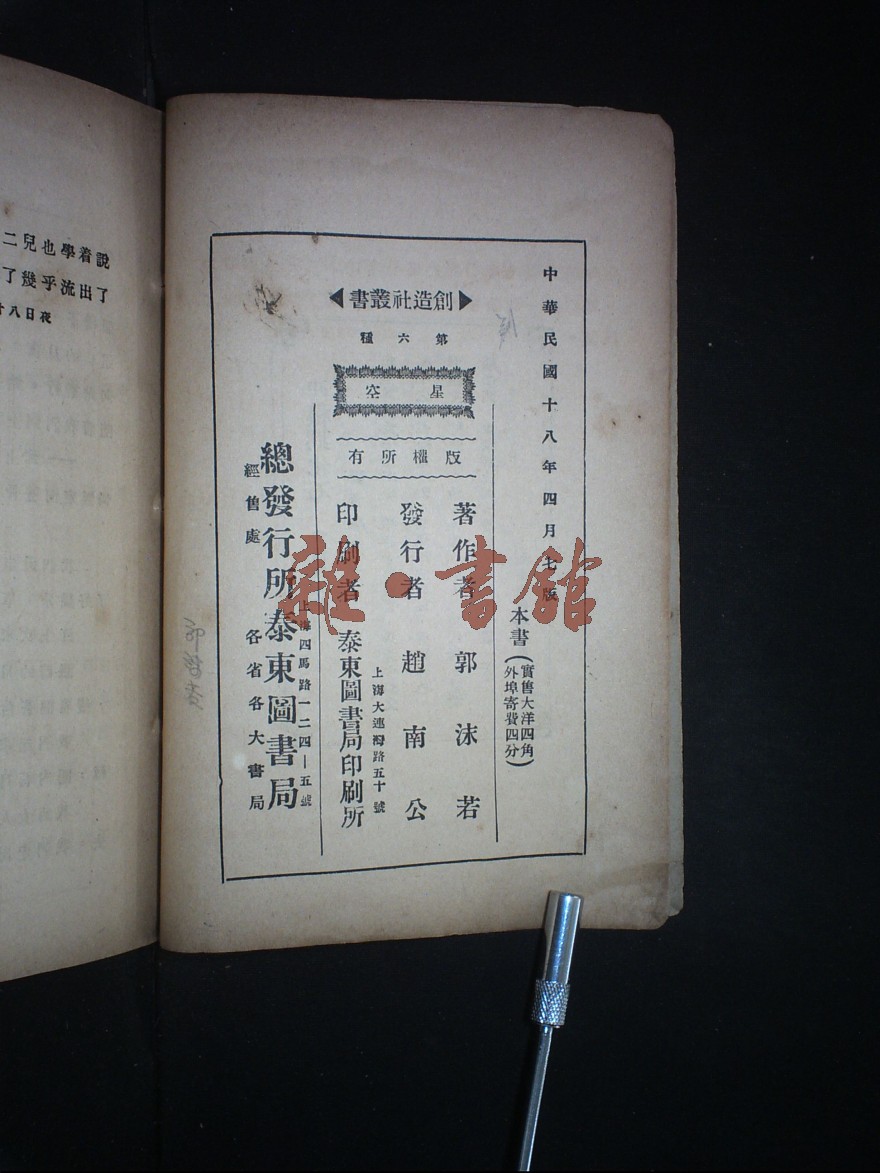 中華民國十八年四月七版
本書(實售大洋四角
外埠寄費四分)
▶創造社叢書◀
第六種
星空
版權所有
著作者 郭沫若
發行者 趙南公
上海大連灣路五十號
印刷者 泰東圖書局印刷所
上海四馬路一二四—五號
總發行所泰東圖書局
經售處 各省各大書局
說着學也兒二
了出流乎幾了
夜日八廿
雜·書館